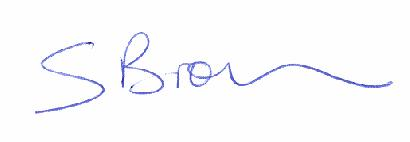 S Brow